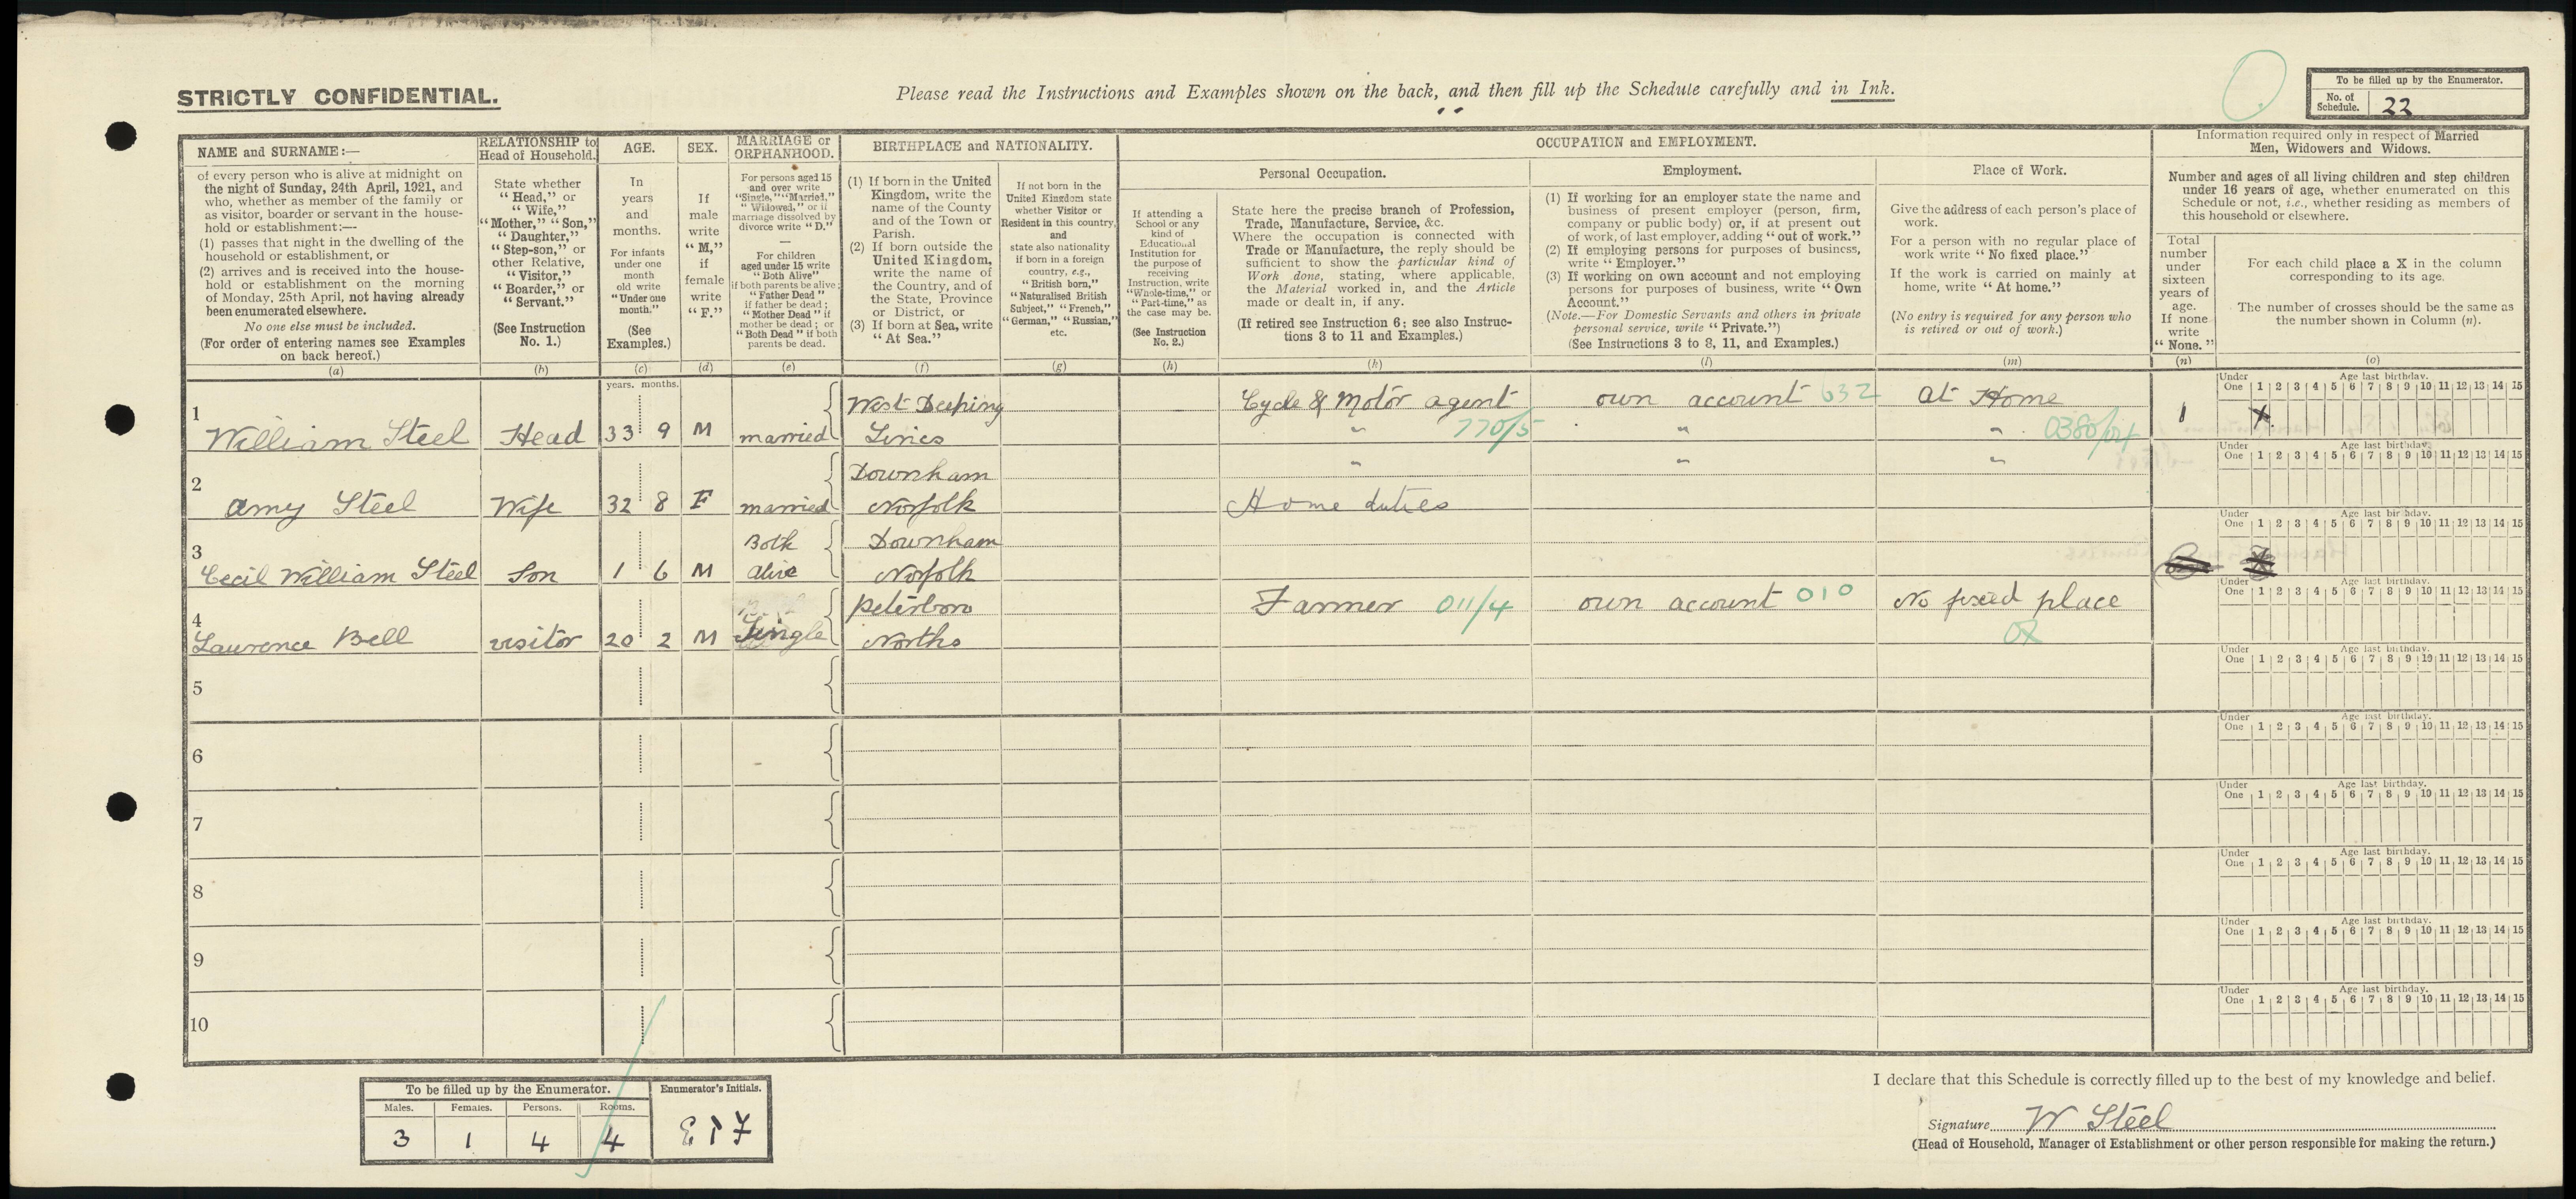 STRICTLY CONFIDENTIAL.
Please read the Instructions and Examples shown on the back, and then fill up the Schedule carefully and in Ink.
To be filled up by the Enumerator.
No. of Schedule. 22
NAME and SURNAME:—
of every person who is alive at midnight on
the night of Sunday, 24th April, 1921, and
who, whether as member of the family or
as visitor, boarder or servant in the house-
hold or establishment:—
(1) passes that night in the dwelling of the
household or establishment, or
(2) arrives and is received into the house-
hold or establishment on the morning
of Monday, 25th April, not having already
been enumerated elsewhere.
No one else must be included.
(For order of entering names see Examples
on back hereof.)
(a)
RELATIONSHIP to
Head of Household.
State whether
"Head," or
"Wife,"
"Mother," "Son,"
"Daughter,"
"Step-son," or
other Relative,
"Visitor,"
"Boarder," or
"Servant."
(See Instruction
No. 1.)
(b)
AGE.
In
years
and
months.
For infants
under one
month
old write
"Under one
month."
(See
Examples.)
(c)
SEX.
If
male
write
"M,"
if
female
write
"F."
(d)
MARRIAGE or
ORPHANHOOD.
For persons aged 15
and over write
"Single," "Married,"
"Widowed," or if
marriage dissolved by
divorce write "D."
—
For children
aged under 15 write
"Both Alive"
if both parents be alive;
"Father Dead"
if father be dead;
"Mother Dead" if
mother be dead; or
"Both Dead" if both
parents be dead.
(e)
BIRTHPLACE and NATIONALITY.
(1) If born in the United
Kingdom, write the
name of the County
and of the Town or
Parish.
(2) If born outside the
United Kingdom,
write the name of
the Country, and of
the State, Province
or District, or
(3) If born at Sea, write
"At Sea."
(f)
If not born in the
United Kingdom state
whether Visitor or
Resident in this country,
and
state also nationality
if born in a foreign
country, e.g.,
"British born,"
"Naturalised British
Subject," "French,"
"German," "Russian,"
etc.
(g)
OCCUPATION and EMPLOYMENT.
If attending a
School or any
kind of
Educational
Institution for
the purpose of
receiving
Instruction, write
"Whole-time," or
"Part-time," as
the case may be.
(See Instruction
No. 2.)
(h)
Personal Occupation.
State here the precise branch of Profession,
Trade, Manufacture, Service, &c.
Where the occupation is connected with
Trade or Manufacture, the reply should be
sufficient to show the particular kind of
Work done, stating, where applicable,
the Material worked in, and the Article
made or dealt in, if any.
(If retired see Instruction 6; see also Instruc-
tions 3 to 11 and Examples.)
(k)
Employment.
(1) If working for an employer state the name and
business of present employer (person, firm,
company or public body) or, if at present out
of work, of last employer, adding "out of work."
(2) If employing persons for purposes of business,
write "Employer."
(3) If working on own account and not employing
persons for purposes of business, write "Own
Account."
(Note.—For Domestic Servants and others in private
personal service, write "Private.")
(See Instructions 3 to 8, 11, and Examples.)
(l)
Place of Work.
Give the address of each person's place of
work.
For a person with no regular place of
work write "No fixed place."
If the work is carried on mainly at
home, write "At home."
(No entry is required for any person who
is retired or out of work.)
(m)
Information required only in respect of Married
Men, Widowers and Widows.
Number and ages of all living children and step children
under 16 years of age, whether enumerated on this
Schedule or not, i.e., whether residing as members of
this household or elsewhere.
Total
number
under
sixteen
years of
age.
If none
write
"None."
(n)
For each child place a X in the column
corresponding to its age.
The number of crosses should be the same as
the number shown in Column (n).
(o)
years. months.
Under One Age last birthday. 1 2 3 4 5 6 7 8 9 10 11 12 13 14 15
1 William Steel Head 33 9 M married West Deeping Lincs Cycle & Motor agent 770/5 own account 632 at Home 0380/04 1 X
Under One Age last birthday. 1 2 3 4 5 6 7 8 9 10 11 12 13 14 15
2 Amy Steel Wife 32 8 F married Downham Norfolk Home duties
Under One Age last birthday. 1 2 3 4 5 6 7 8 9 10 11 12 13 14 15
3 Cecil William Steel Son 1 6 M Both alive Downham Norfolk
Under One Age last birthday. 1 2 3 4 5 6 7 8 9 10 11 12 13 14 15
4 Laurence Bell visitor 20 2 M Single Peterboro Northo Farmer 011/4 own account 010 No fixed place
Under One Age last birthday. 1 2 3 4 5 6 7 8 9 10 11 12 13 14 15
5
Under One Age last birthday. 1 2 3 4 5 6 7 8 9 10 11 12 13 14 15
6
Under One Age last birthday. 1 2 3 4 5 6 7 8 9 10 11 12 13 14 15
7
Under One Age last birthday. 1 2 3 4 5 6 7 8 9 10 11 12 13 14 15
8
Under One Age last birthday. 1 2 3 4 5 6 7 8 9 10 11 12 13 14 15
9
Under One Age last birthday. 1 2 3 4 5 6 7 8 9 10 11 12 13 14 15
10
To be filled up by the Enumerator.
Males. Females. Persons. Rooms.
3 1 4 4
Enumerator's Initials.
I declare that this Schedule is correctly filled up to the best of my knowledge and belief.
Signature W Steel
(Head of Household, Manager of Establishment or other person responsible for making the return.)